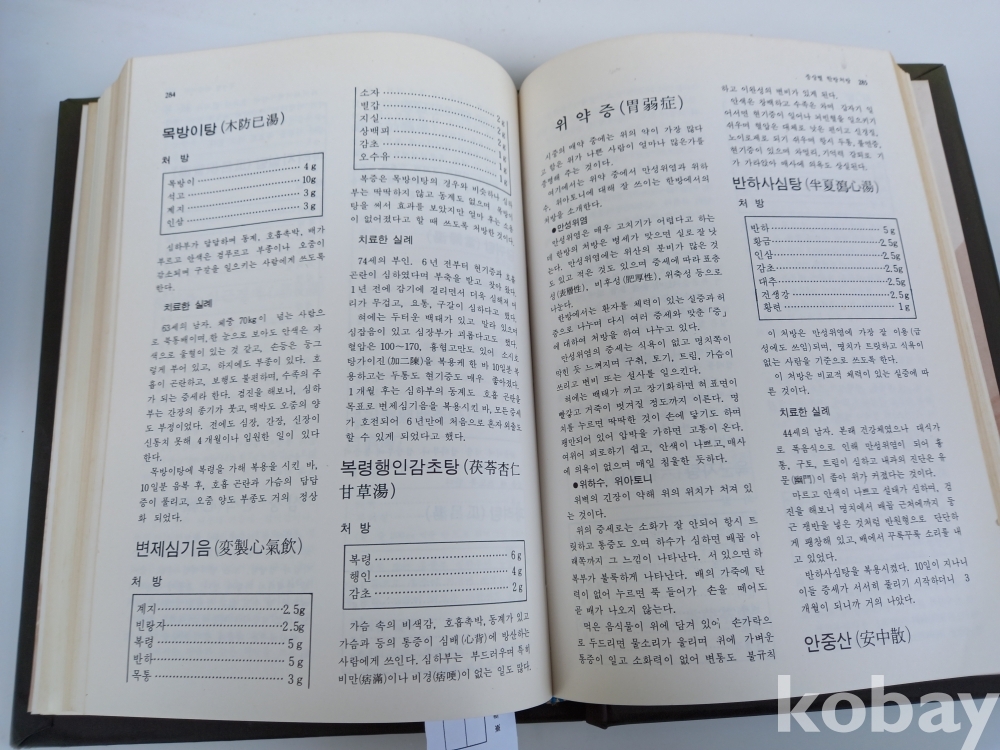 284
목방이탕(木防已湯)
처 방
목방이 4g
석고 10g
계지 3g
인삼 3g
심하부가 답답하며 동계, 호흡촉박, 배가
부르고 안색은 검푸르고 부종이나 오줌이
감소되며 구갈을 일으키는 사람에게 쓰도록
한다.
치료한 실례
63세의 남자. 체중 70kg이 넘는 사람으
로 뚝뚱해이며, 한 눈으로 보아도 안색은 자
색으로 울혈이 있는 것 같고, 손등은 둥그
렇게 부어 있고, 하지에도 부종이 있다. 호
흡이 곤란하고, 보행도 불편하며, 수족의 주
가 되는 증세라 한다. 겉진을 해보니, 심하
부는 간장의 종기가 붓고, 맥박도 오줌의 양
도 부정이었다. 전에도 심장, 간장, 신장이
신통치 못해 4개월이나 입원한 일이 있다
한다.
목방이탕에 복령을 가해 복용을 시킨 바,
10일분 음복 후, 호흡 곤란과 가슴의 답답
증이 풀리고, 오줌 양도 부종도 거의 정상
화 되었다.
변제심기음(変製心氣飲)
처 방
계지 2.5g
빈랑자 2.5g
복령 5g
반하 5g
목통 3g
소자 2g
별갑 2g
지실 2g
상백피 1g
감초 1g
오수유 1g
복증은 목방이탕의 경우와 비슷하나 심하
부는 딱딱하지 않고 동계도 없으며 목방이
탕을 써서 효과를 보았지만 얼마 후는 속용
이 없어졌다고 할 때 쓰도록 처방한 것이다.
치료한 실례
74세의 부인. 6년 전부터 현기증과 호흡
곤란이 심하였다며 부축을 받고 찾아 왔다.
1년 전에 감기에 걸리면서 더욱 심해져 머
리가 무겁고, 요통, 구갈이 심하다고 했다.
혀에는 두터운 백태가 있고 말라 있으며
심잡음이 있고 심장부가 괴롭다고도 했다.
혈압은 100~170, 흉협고만도 있어 소시호
탕가이진(加二陳)을 복용케 한 바 10일분 복
용하고는 두통도 현기증도 매우 좋아졌다.
1개월 후는 심하부의 동계도 호흡 곤란을
목표로 변제심기음을 복용시킨 바, 모든 증세
가 호전되어 6년만에 처음으로 혼자 외출도
할 수 있게 되었다고 했다.
복령행인감초탕(茯苓杏仁
甘草湯)
처 방
복령 6g
행인 4g
감초 2g
가슴 속의 비색감, 호흡촉박, 동계가 있고
가슴과 등의 통증이 심배(心背)에 방산하는
사람에게 쓰인다. 심하부는 부드러우며 특히
비만(痞滿)이나 비경(痞哽)이 없는 일도 많다.
증상별 한방처방 285
위 약 증(胃弱症)
시중의 매약 중에는 위의 약이 가장 많다
고 함은 위가 나쁜 사람이 얼마나 많은가를
증명해 주는 것이다.
여기에서는 위약 중에서 만성위염과 위하
수, 위아토니에 대해 잘 쓰이는 한방에서의
처방을 소개한다.
●만성위염
만성위염은 매우 고치기가 어렵다고 하는
데 한방의 처방은 병세가 맞으면 실로 잘 낫
는다. 만성위염에는 위산의 분비가 많은 것
도 있고 적은 것도 있으며 증세에 따라 표층
성(表層性), 비후성(肥厚性), 위축성 등으로
나눈다.
한방에서는 환자를 체력이 있는 실증과 허
증으로 나누며 다시 여러 증세와 맞춘 「증」
에 대하여 처방을 하여 나누고 있다.
만성위염의 증세는 식욕이 없고 명치쪽이
막힌 듯 느껴지며 구취, 토기, 트림, 가슴이
쓰리고 변비 또는 설사를 일으킨다.
혀에는 백태가 끼고 장기화하면 혀 표면이
빨갛고 거죽이 벗겨질 정도까지 이른다. 명
치를 누르면 딱딱한 것이 손에 닿기도 하며
팽만되어 있어 압박을 가하면 고통이 온다.
여위어 피로하기 쉽고, 안색이 나쁘고, 매사
에 의욕이 없으며 매일 침울한 듯하다.
●위하수, 위아토니
위벽의 긴장이 약해 위의 위치가 처져 있
는 것이다.
위의 증세로는 소화가 잘 안되어 항시 트
릿하고 통증도 오며 하수가 심하면 배꼽 아
래쪽까지 그 느낌이 나타난다. 서 있으면 하
복부가 불룩하게 나타난다. 배의 가죽에 탄
력이 없어 누르면 푹 들어가 손을 떼어도
곧 배가 나오지 않는다.
먹은 음식물이 위에 담겨 있어 손가락으
로 두드리면 물소리가 울리며 위에 가벼운
통증이 일고 소화력이 없어 변통도 불규칙
하고 이완성의 변비가 있게 된다.
안색은 창백하고 수족은 차며 갑자기 일
어서면 현기증이 일어나 피빈혈을 일으키기
쉬우며 혈압은 대체로 낮은 편이고 신경질,
노이로제로 되기 쉬우며 항시 두통, 불면증,
현기증이 있으며 과민리, 기억력 감퇴로 기
가 가라앉아 매사에 의욕도 상실된다.
반하사심탕(半夏瀉心湯)
처 방
반하 5g
황금 2.5g
인삼 2.5g
감초 2.5g
대추 2.5g
건생강 2.5g
황련 1g
이 처방은 만성위염에 가장 잘 이용(급
성에도 쓰임)되며, 명치가 트릿하고 식욕이
없는 사람을 기준으로 쓰도록 한다.
이 처방은 비교적 체력이 있는 실증에 따
른 것이다.
치료한 실례
44세의 남자. 본래 건강체였으나 대식가
로 폭음식으로 인해 만성위염이 되어 홀
통, 구토, 트림이 심하고 내과의 진단은 유
문(幽門)이 좁아 위가 커졌다는 것이다.
마르고 안색이 나쁘고 설태가 심하며, 겉
진을 해보니 명치에서 배꼽 근처에까지 둥
근 쟁반을 넣은 것처럼 반원형으로 단단하
게 팽창해 있고, 배에서 꾸룩꾸룩 소리를 내
고 있었다.
반하사심탕을 복용시켰다. 10일이 지나니
이들 증세가 서서히 풀리기 시작하더니 3
개월이 되니까 거의 나았다.
안중산(安中散)
kobay